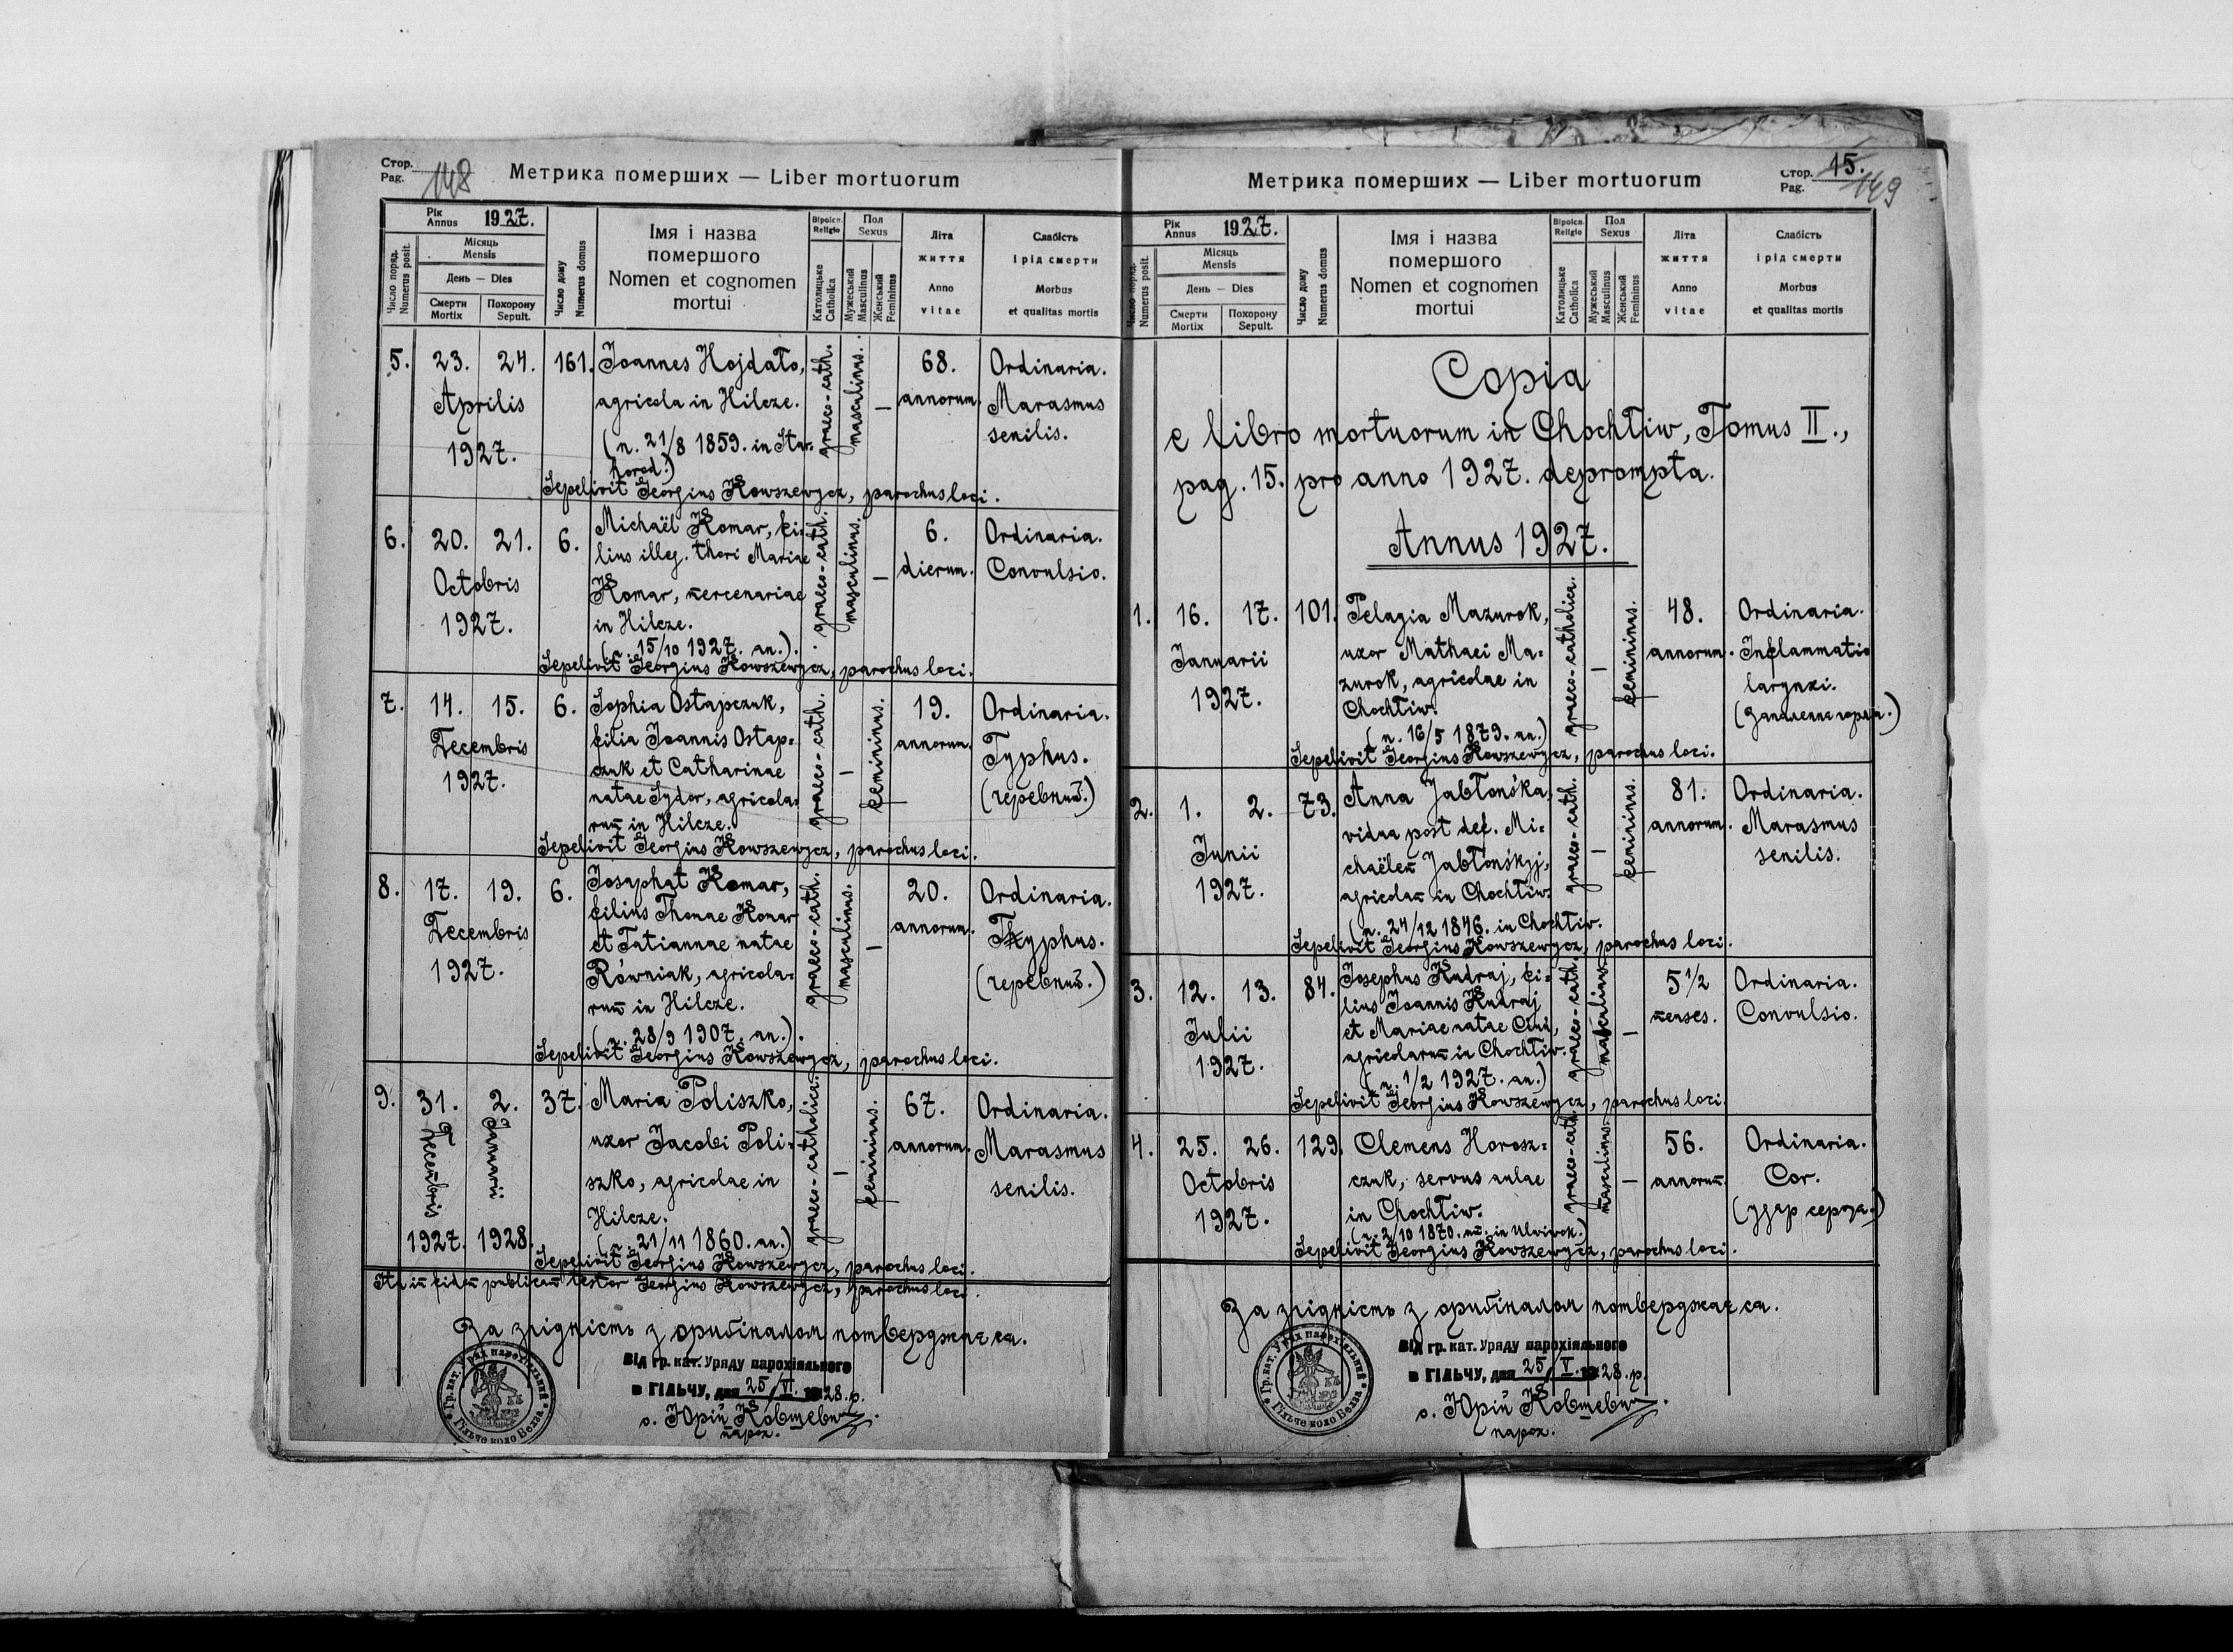 Стор.
Pag. 148
Метрика померших — Liber mortuorum
Рік
Annus 1927.
Місяць
Mensis
День — Dies
Число поряд.
Numerus posit.
Смерти
Mortix
Похорону
Sepult.
Число дому
Numerus domus
Імя і назва
помершого
Nomen et cognomen
mortui
Віроісп.
Religio
Католицьке
Catholica
Пол
Sexus
Мужеський
Masculinus
Женський
Femininus
Літа
життя
Anno
vitae
Слабість
і рід смерти
Morbus
et qualitas mortis
5. 23. 24. 161. Joannes Hojdało, graeco-cath. masculinus. — 68. Ordinaria.
Aprilis agricola in Hilcze. annorum. Marasmus
1927. (n. 21/8 1859. in Star- senilis.
horod.)
Sepelivit Georgius Kowszewycz, parochus loci.
6. 20. 21. 6. Michaël Komar, fi- graeco-cath. masculinus. — 6. Ordinaria.
Octobris lius illeg. thori Mariae dierum. Convulsio.
1927. Komar, mercenariae
in Hilcze.
(n. 15/10 1927. an.).
Sepelivit Georgius Kowszewycz, parochus loci.
7. 14. 15. 6. Sophia Ostapczuk, graeco-cath. — femininus. 19. Ordinaria.
Decembris filia Joannis Ostap- annorum. Typhus.
1927. czuk et Catharinae (черевний.)
natae Sydor, agricola-
rum in Hilcze.
Sepelivit Georgius Kowszewycz, parochus loci.
8. 17. 19. 6. Josaphat Komar, graeco-cath. masculinus. — 20. Ordinaria.
Decembris filius Thomae Komar annorum. Typhus.
1927. et Tatiannae natae (черевний.)
Równiak, agricola-
rum in Hilcze.
(n. 28/9 1907. an.).
Sepelivit Georgius Kowszewycz, parochus loci.
9. 31. 2. 37. Maria Poliszko, graeco-catholica. — femininus. 67. Ordinaria.
Decembris Januarii uxor Jacobi Poli- annorum. Marasmus
szko, agricolae in senilis.
Hilcze.
1927. 1928. (n. 21/11 1860. an.)
Sepelivit Georgius Kowszewycz, parochus loci.
Ita in fidem publicam testor Georgius Kowszewycz, parochus loci.
За згідність з оригіналом потверджає ся.
Від гр. кат. Уряду парохіяльного
в ГІЛЬЧУ, дня 25/VI. 1928. р.
о. Юрій Ковшевич.
парох.
Гр. кат. Уряд парохіяльний
Гільче коло Белза
Метрика померших — Liber mortuorum
Стор.
Pag. 15.
149
Рік
Annus 1927.
Місяць
Mensis
День — Dies
Число поряд.
Numerus posit.
Смерти
Mortix
Похорону
Sepult.
Число дому
Numerus domus
Імя і назва
помершого
Nomen et cognomen
mortui
Віроісп.
Religio
Католицьке
Catholica
Пол
Sexus
Мужеський
Masculinus
Женський
Femininus
Літа
життя
Anno
vitae
Слабість
і рід смерти
Morbus
et qualitas mortis
Copia
e libro mortuorum in Chochtiw, Tomus II.,
pag. 15. pro anno 1927. deprompta.
Annus 1927.
1. 16. 17. 101. Pelagia Mazurok, graeco-catholica. — femininus. 48. Ordinaria.
Januarii uxor Mathaei Ma- annorum. Inflammatio
1927. zurok, agricolae in larynxi.
Chochtiw. (запаленнє горла.)
(n. 16/5 1879. an.)
Sepelivit Georgius Kowszewycz, parochus loci.
2. 1. 2. 73. Anna Jabłońska, graeco-cath. — femininus. 81. Ordinaria.
Junii vidua post def. Mi- annorum. Marasmus
1927. chaëlem Jabłońśkyj, senilis.
agricolam in Chochtiw.
(n. 24/12 1846. in Chochtiw.
Sepelivit Georgius Kowszewycz, parochus loci.
3. 12. 13. 84. Josephus Kudraj, fi- graeco-cath. masculinus. — 5 1/2 Ordinaria.
Julii lius Joannis Kudraj menses. Convulsio.
1927. et Mariae natae
agricolarum in Chochtiw.
(n. 1/2 1927. an.)
Sepelivit Georgius Kowszewycz, parochus loci.
4. 25. 26. 129. Clemens Horosz- graeco-cath. masculinus. — 56. Ordinaria.
Octobris czuk, servus aulae annorum. Cor.
1927. in Chochtiw. (удар серця.)
(n. 2/10 1870. in Ulwiwok.)
Sepelivit Georgius Kowszewycz, parochus loci.
За згідність з оригіналом потверджає ся.
Від гр. кат. Уряду парохіяльного
в ГІЛЬЧУ, дня 25/V. 1928. р.
о. Юрій Ковшевич.
парох.
Гр. кат. Уряд парохіяльний
Гільче коло Белза